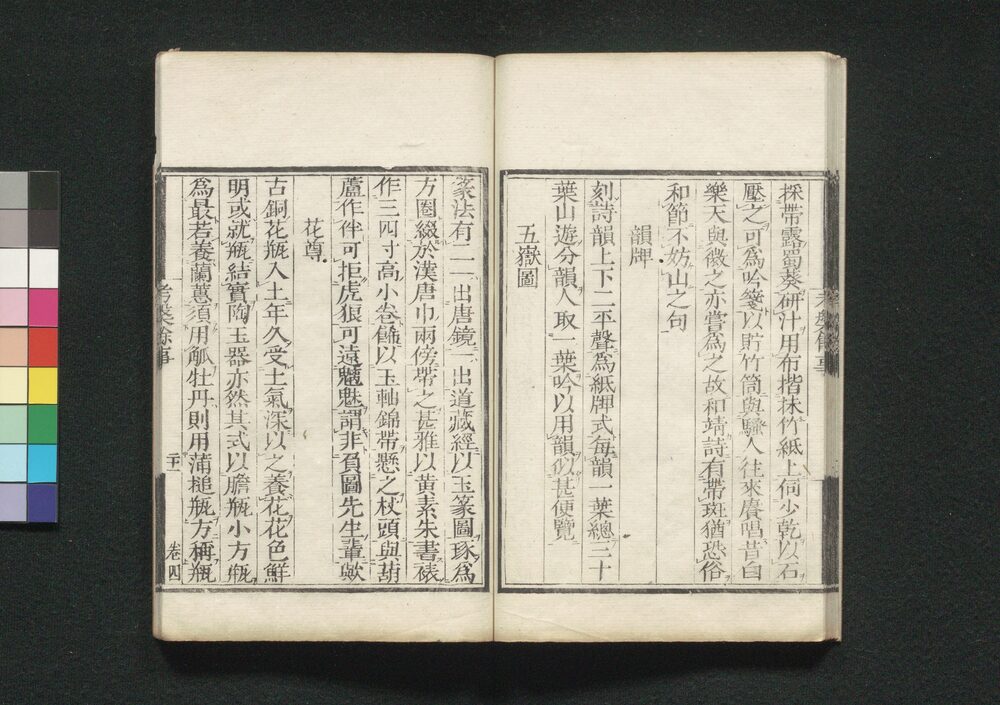 採帶露蜀葵研汁用布揩抹竹紙上伺少乾以石
壓之可為吟箋以貯竹筒與騷人往來賡唱昔白
樂天與微之亦嘗為之故和靖詩有帶斑猶恐俗
和節不妨山之句
韻牌
刻詩韻上下二平聲為紙牌式每韻一葉總三十
葉山遊分韻人取一葉吟以用韻似甚便覽
五嶽圖
篆法有二一出唐鏡一出道藏經以玉篆圖琢為
方圈綴於漢唐巾兩傍帶之甚雅以黃素朱書裱
作三四寸高小卷餙以玉軸錦帶懸之杖頭與葫
蘆作伴可拒虎狼可遠魑魅謂非負圖先生輩歟
花尊
古銅花瓶入土年久受土氣深以之養花花色鮮
明或就瓶結實陶玉器亦然其式以膽瓶小方瓶
為最若養蘭蕙須用觚牡丹則用蒲槌瓶方稱瓶
考槃餘事
二十一
卷四